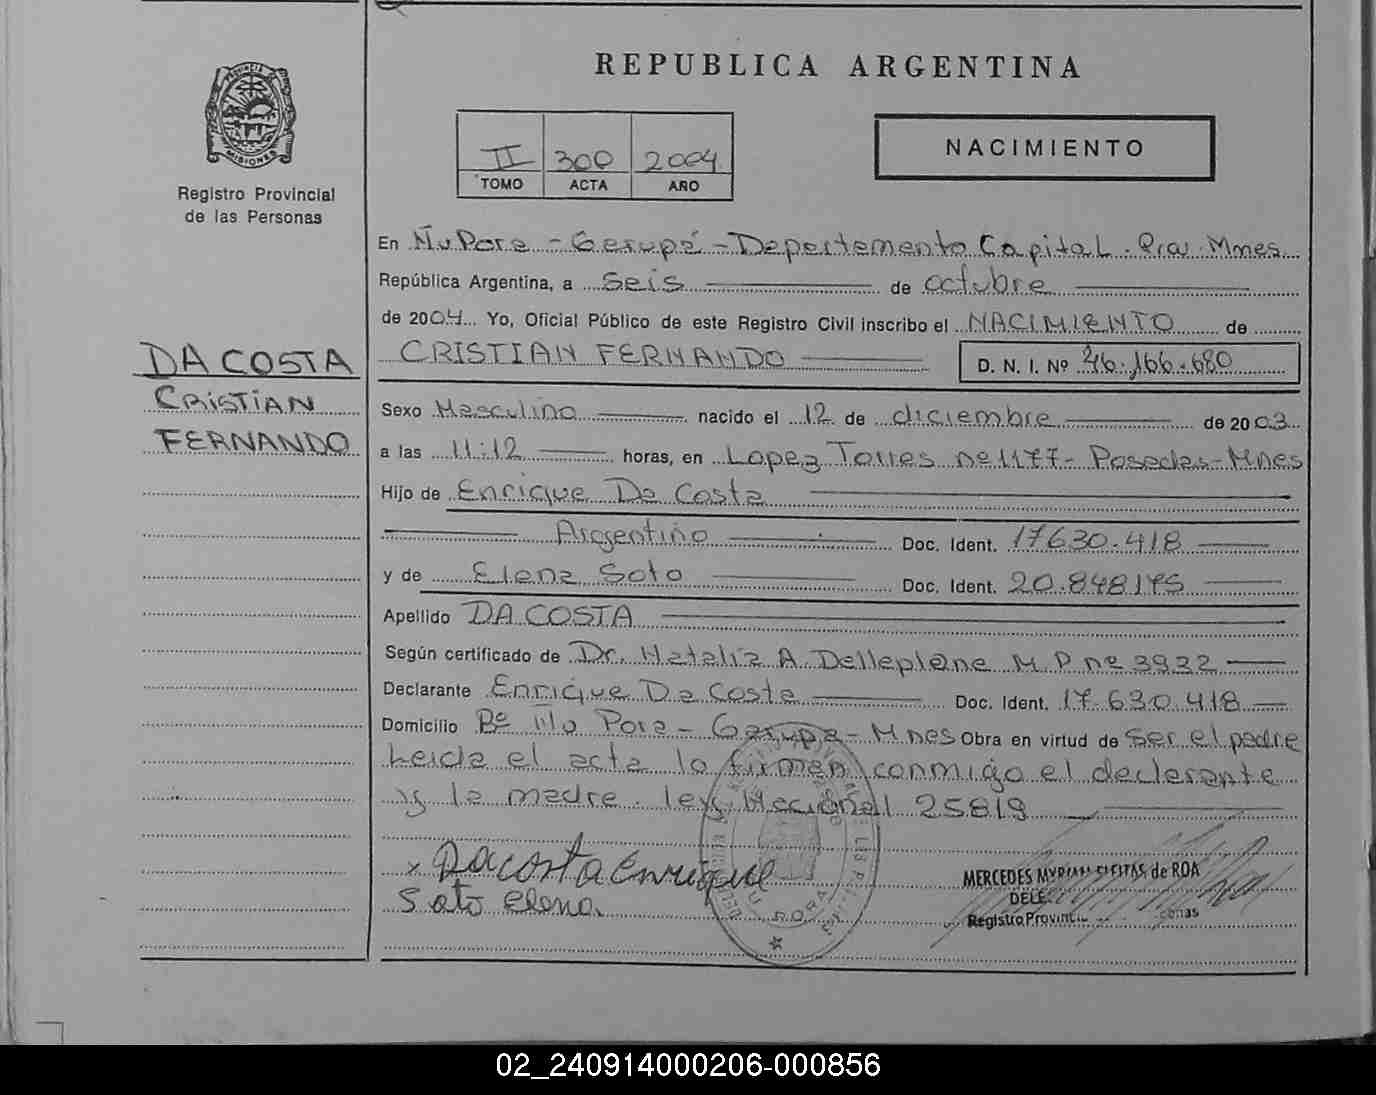 REPUBLICA ARGENTINA
PROVINCIA DE
MISIONES
Registro Provincial
de las Personas
II 300 2004
TOMO ACTA AÑO
NACIMIENTO
En Ñu Pora - Garupá - Departamento Capital. Pcia. Mnes.
República Argentina, a seis de octubre
de 2004. Yo, Oficial Público de este Registro Civil inscribo el NACIMIENTO de
CRISTIAN FERNANDO D. N. I. Nº 46.166.680
DA COSTA
CRISTIAN
FERNANDO
Sexo Masculino nacido el 12 de diciembre de 2003
a las 11:12 horas, en Lopez Torres nº 1177- Posadas-Mnes
Hijo de Enrique Da Costa
Argentino Doc. Ident. 17630.418
y de Elena Soto Doc. Ident. 20.848175
Apellido DA COSTA
Según certificado de Dr. Natalia A Delleplane M.P nº 3932
Declarante Enrique Da Costa Doc. Ident. 17.630.418
Domicilio Bº Ñu Pora - Garupa - Mnes Obra en virtud de Ser el padre
Leida el acta la firman conmigo el declarante
y la madre. ley Nacional 25819
x Da Costa Enrique
Soto Elena.
MERCEDES MYRIAM FLEITAS de ROA
DELE
Registro Provinci
02_240914000206-000856